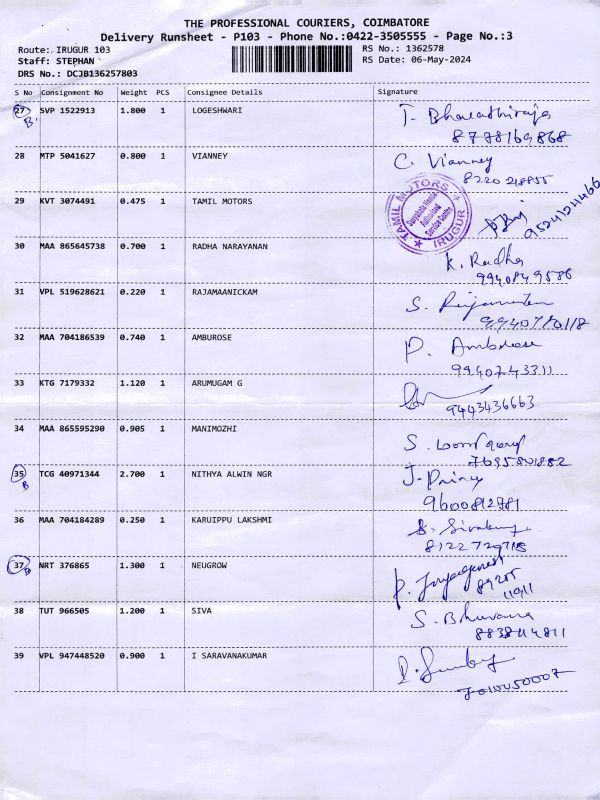 THE PROFESSIONAL COURIERS, COIMBATORE
Delivery Runsheet - P103 - Phone No.:0422-3505555 - Page No.:3
Route: IRUGUR 103 RS No.: 1362578
Staff: STEPHAN RS Date: 06-May-2024
DRS No.: DCJB136257803
S No Consignment No Weight PCS Consignee Details Signature
27 SVP 1522913 1.800 1 LOGESHWARI T. Bharathiraja
B 8778169868
28 MTP 5041627 0.800 1 VIANNEY C. Vianney
8220218855
29 KVT 3074491 0.475 1 TAMIL MOTORS TAMIL MOTORS IRUGUR
Authorised
Service Centre
9524124466
30 MAA 865645738 0.700 1 RADHA NARAYANAN K. Radha
9940849586
31 VPL 519628621 0.220 1 RAJAMAANICKAM S.
32 MAA 704186539 0.740 1 AMBUROSE P. Ambrose
9940743311
33 KTG 7179332 1.120 1 ARUMUGAM G
9443436663
34 MAA 865595290 0.905 1 MANIMOZHI S.
7695801882
35 TCG 40971344 2.700 1 NITHYA ALWIN NGR J. Princy
B 9600812781
36 MAA 704184289 0.250 1 KARUIPPU LAKSHMI
8122729718
37 NRT 376865 1.300 1 NEUGROW
B 89255
11911
38 TUT 966505 1.200 1 SIVA S. Bhuvana
8838114811
39 VPL 947448520 0.900 1 I SARAVANAKUMAR
7010050007